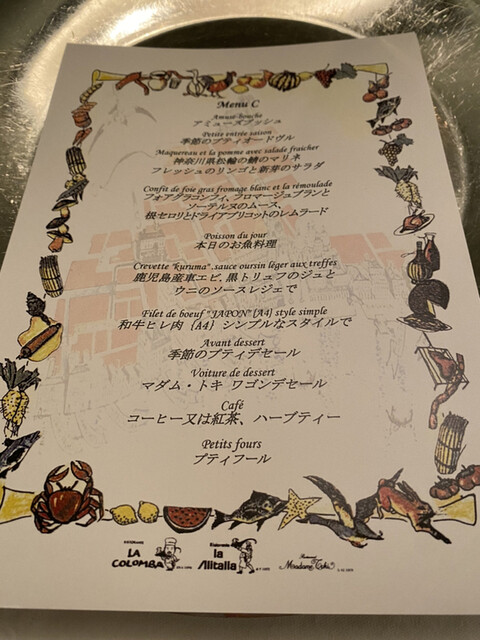 Menu C
Amuse bouche
アミューズブッシュ
Petite entrée saison
季節のプティオードヴル
Maquereau et la pomme avec salade fraicher
神奈川県松輪の鯖のマリネ
フレッシュのリンゴと新芽のサラダ
Confit de foie gras fromage blanc et la rémoulade
フォアグラコンフィ、フロマージュブランと
ソーテルヌのムース、
根セロリとドライアプリコットのレムラード
Poisson du jour
本日のお魚料理
Crevette "kuruma", sauce oursin léger aux treffes
鹿児島産車エビ、黒トリュフのジュと
ウニのソースレジェで
Filet de boeuf "JAPON" {A4} style simple
和牛ヒレ肉 {A4} シンプルなスタイルで
Avant dessert
季節のプティデセール
Voiture de dessert
マダム・トキ ワゴンデセール
Café
コーヒー又は紅茶、ハーブティー
Petits fours
プティフール
LA COLOMBA
la Alitalia
Madame Toki